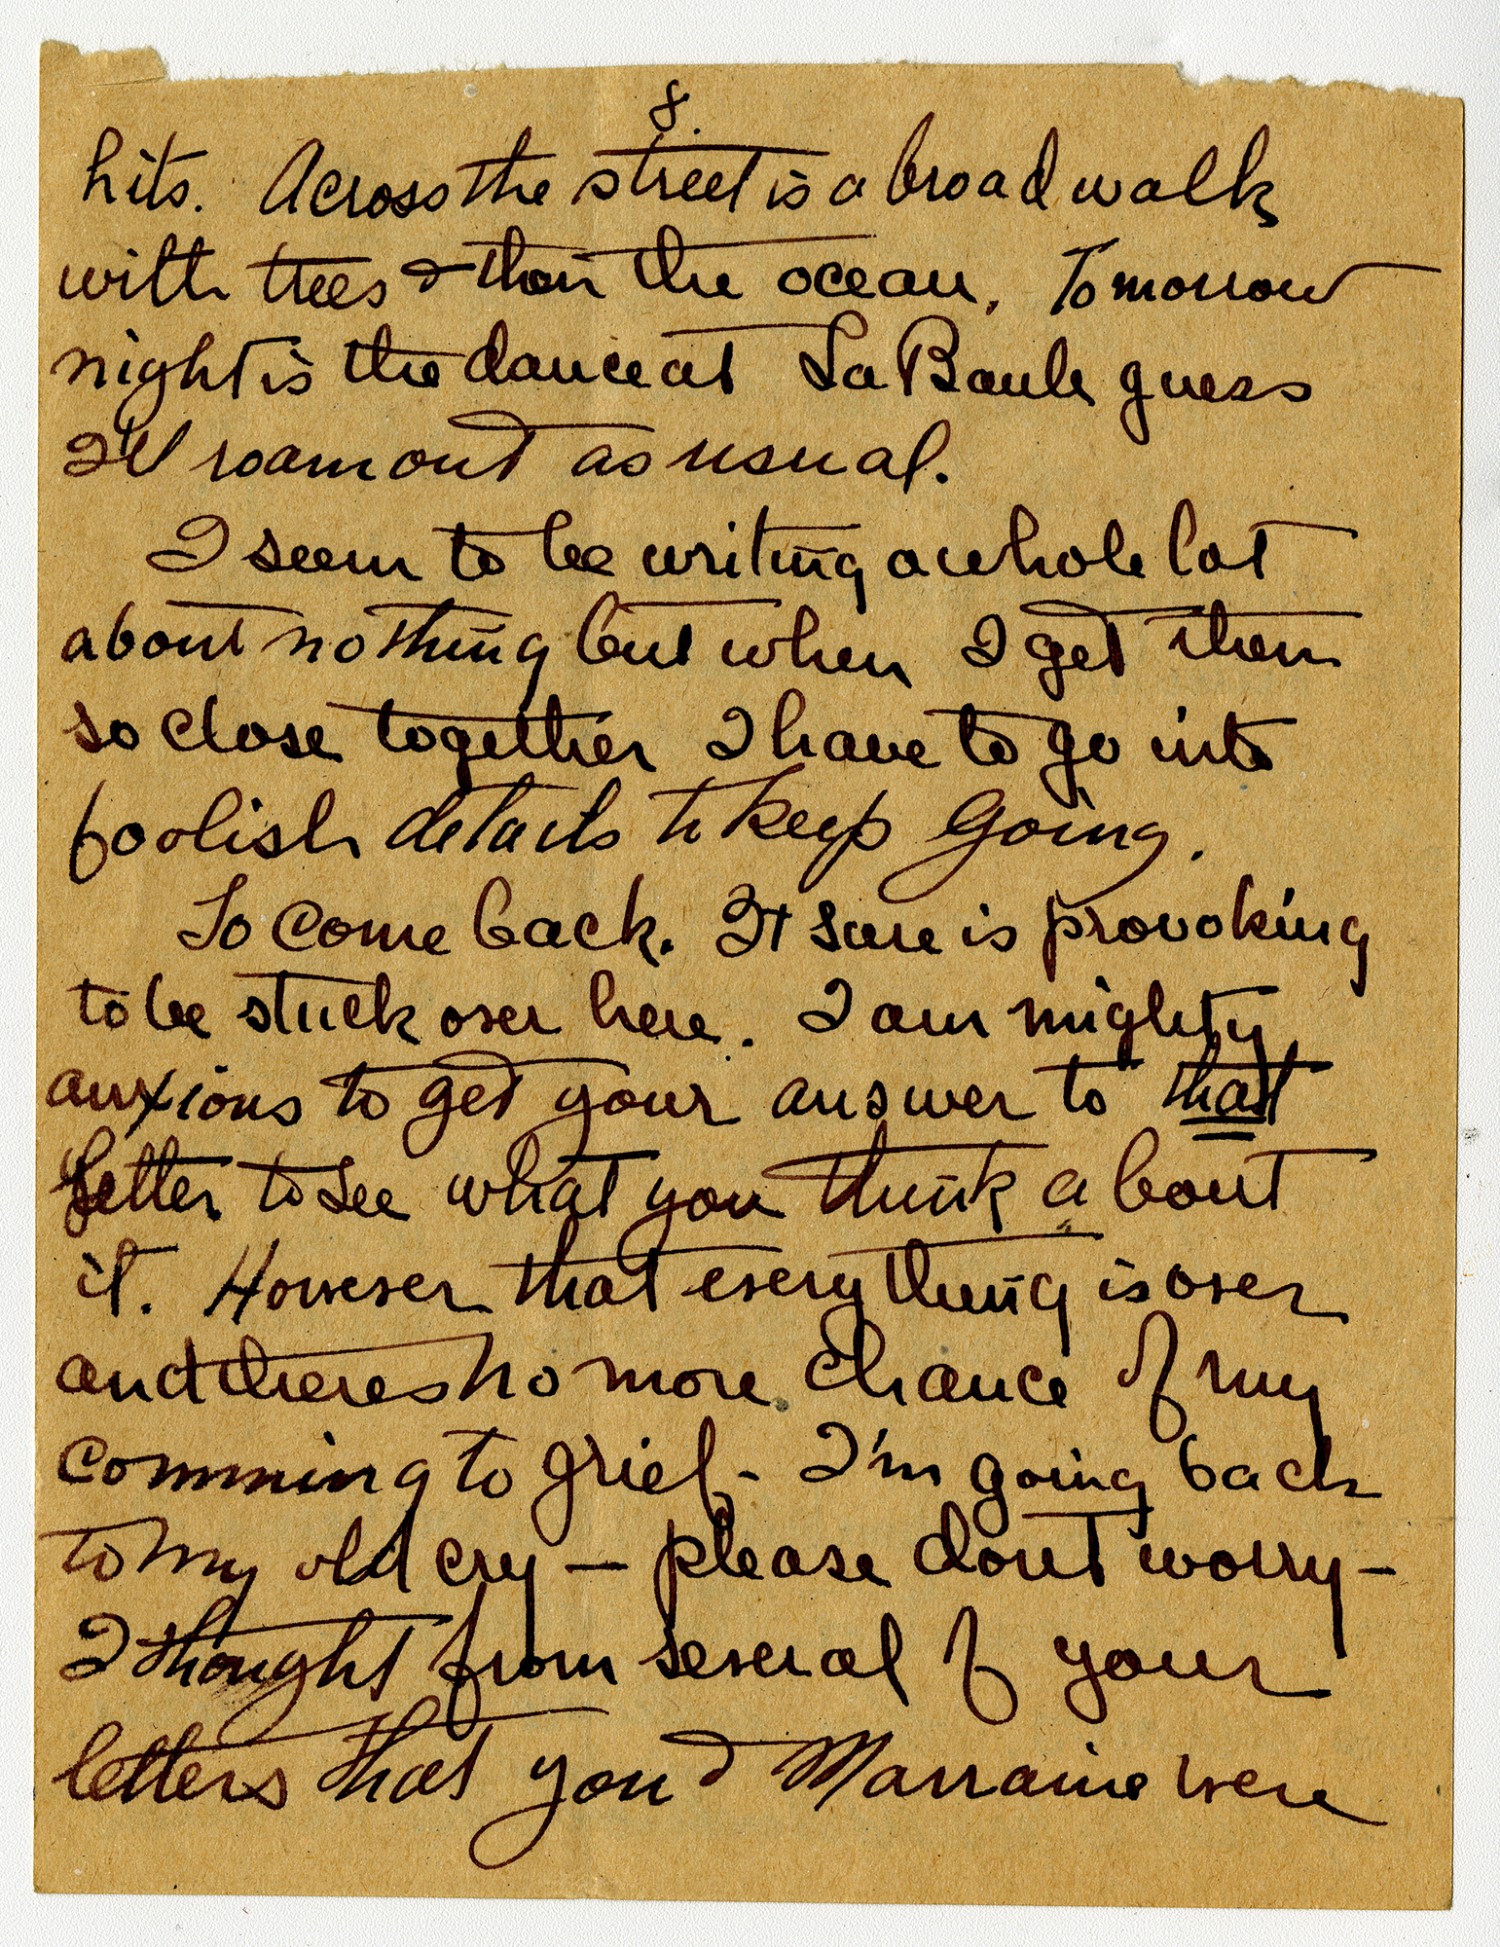 8.
hits. Across the street is a broad walk
with trees & then the ocean. Tomorrow
night is the dance at La Baule guess
I'll roam out as usual.
I seem to be writing a whole lot
about nothing but when I get them
so close together I have to go into
foolish details to keep going.
To come back. It sure is provoking
to be stuck over here. I am mighty
anxious to get your answer to that
letter to see what you think about
it. However that everything is over
and theres no more chance of my
comming to grief - I'm going back
to my old cry — please dont worry -
I thought from several of your
letters that you & Marraine were